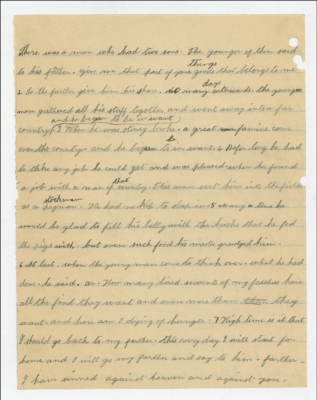 There was a man who had two sons. The younger of them said
things
to his father. give me that part of your goods that belongs to me
day
& to the farther give him his share. so many afterwards the younger
man gathered all his stuff together and went away into a far
and he began to be in want
country. 3 When he was stony broke. a great famine came
over the country and he began to be in want. 4 Before long he had
to take any job he could get and was pleased when he found
that
a job with a man of country. This man sent him into the fields
stockman
as a pigman. He had no to sleep in 5 many a time he
would be glad to fill his belly with the husks that he fed
the pigs with but even such food his master grudged him.
6 At last. when the young man come to think over what he had
done. he said. oh. How many hired servants of my father have
all the food they want and even more than they
want. and here am I dying of hunger. 7. High time is it that
I should go back to my father. this very day I will start for
home and I will go my farther and say to him. farther.
I have sinned against heaven and against you.